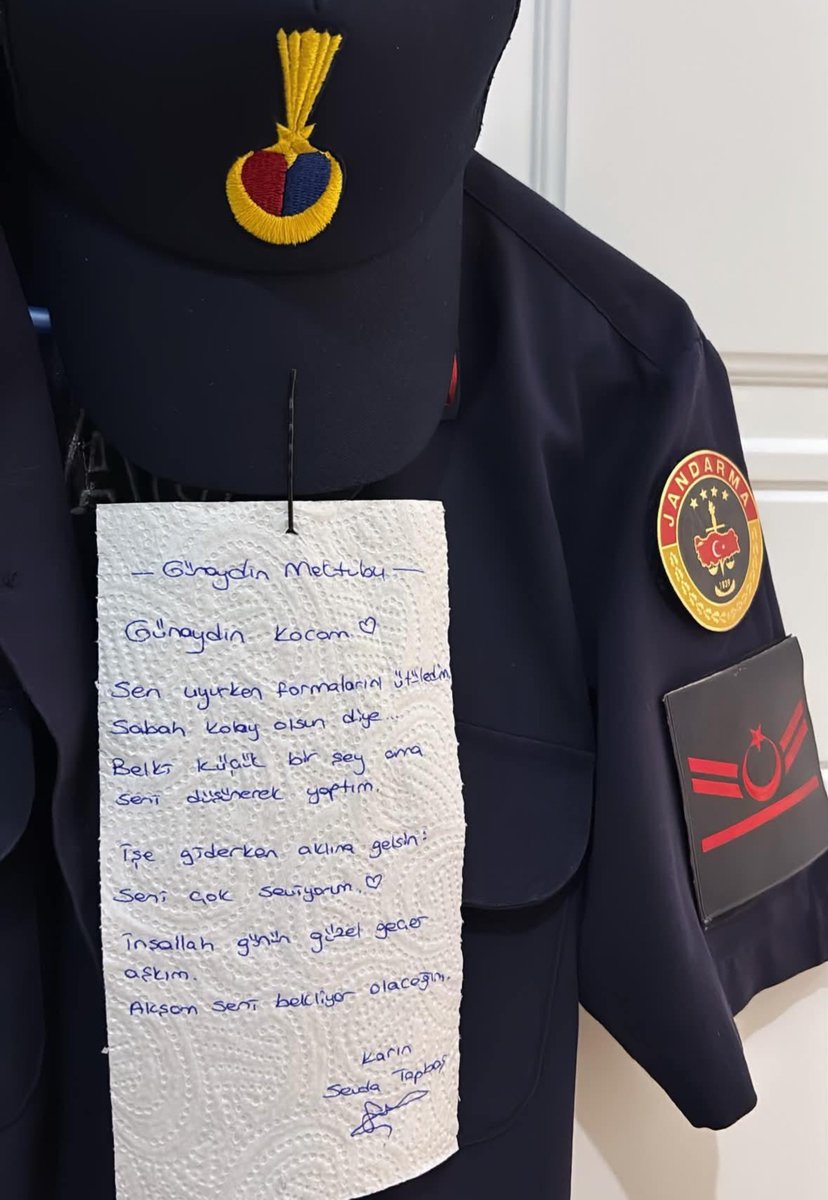 JANDARMA
1839
— Günaydın Mektubu —
Günaydın kocam ♡
Sen uyurken formalarını ütüledim
Sabah kolay olsun diye...
Belki küçük bir şey ama
seni düşünerek yaptım.
İşe giderken aklına gelsin:
Seni çok seviyorum. ♡
İnşallah günün güzel geçer
aşkım.
Akşam seni bekliyor olacağım.
Karın
Sevda Tapbaş